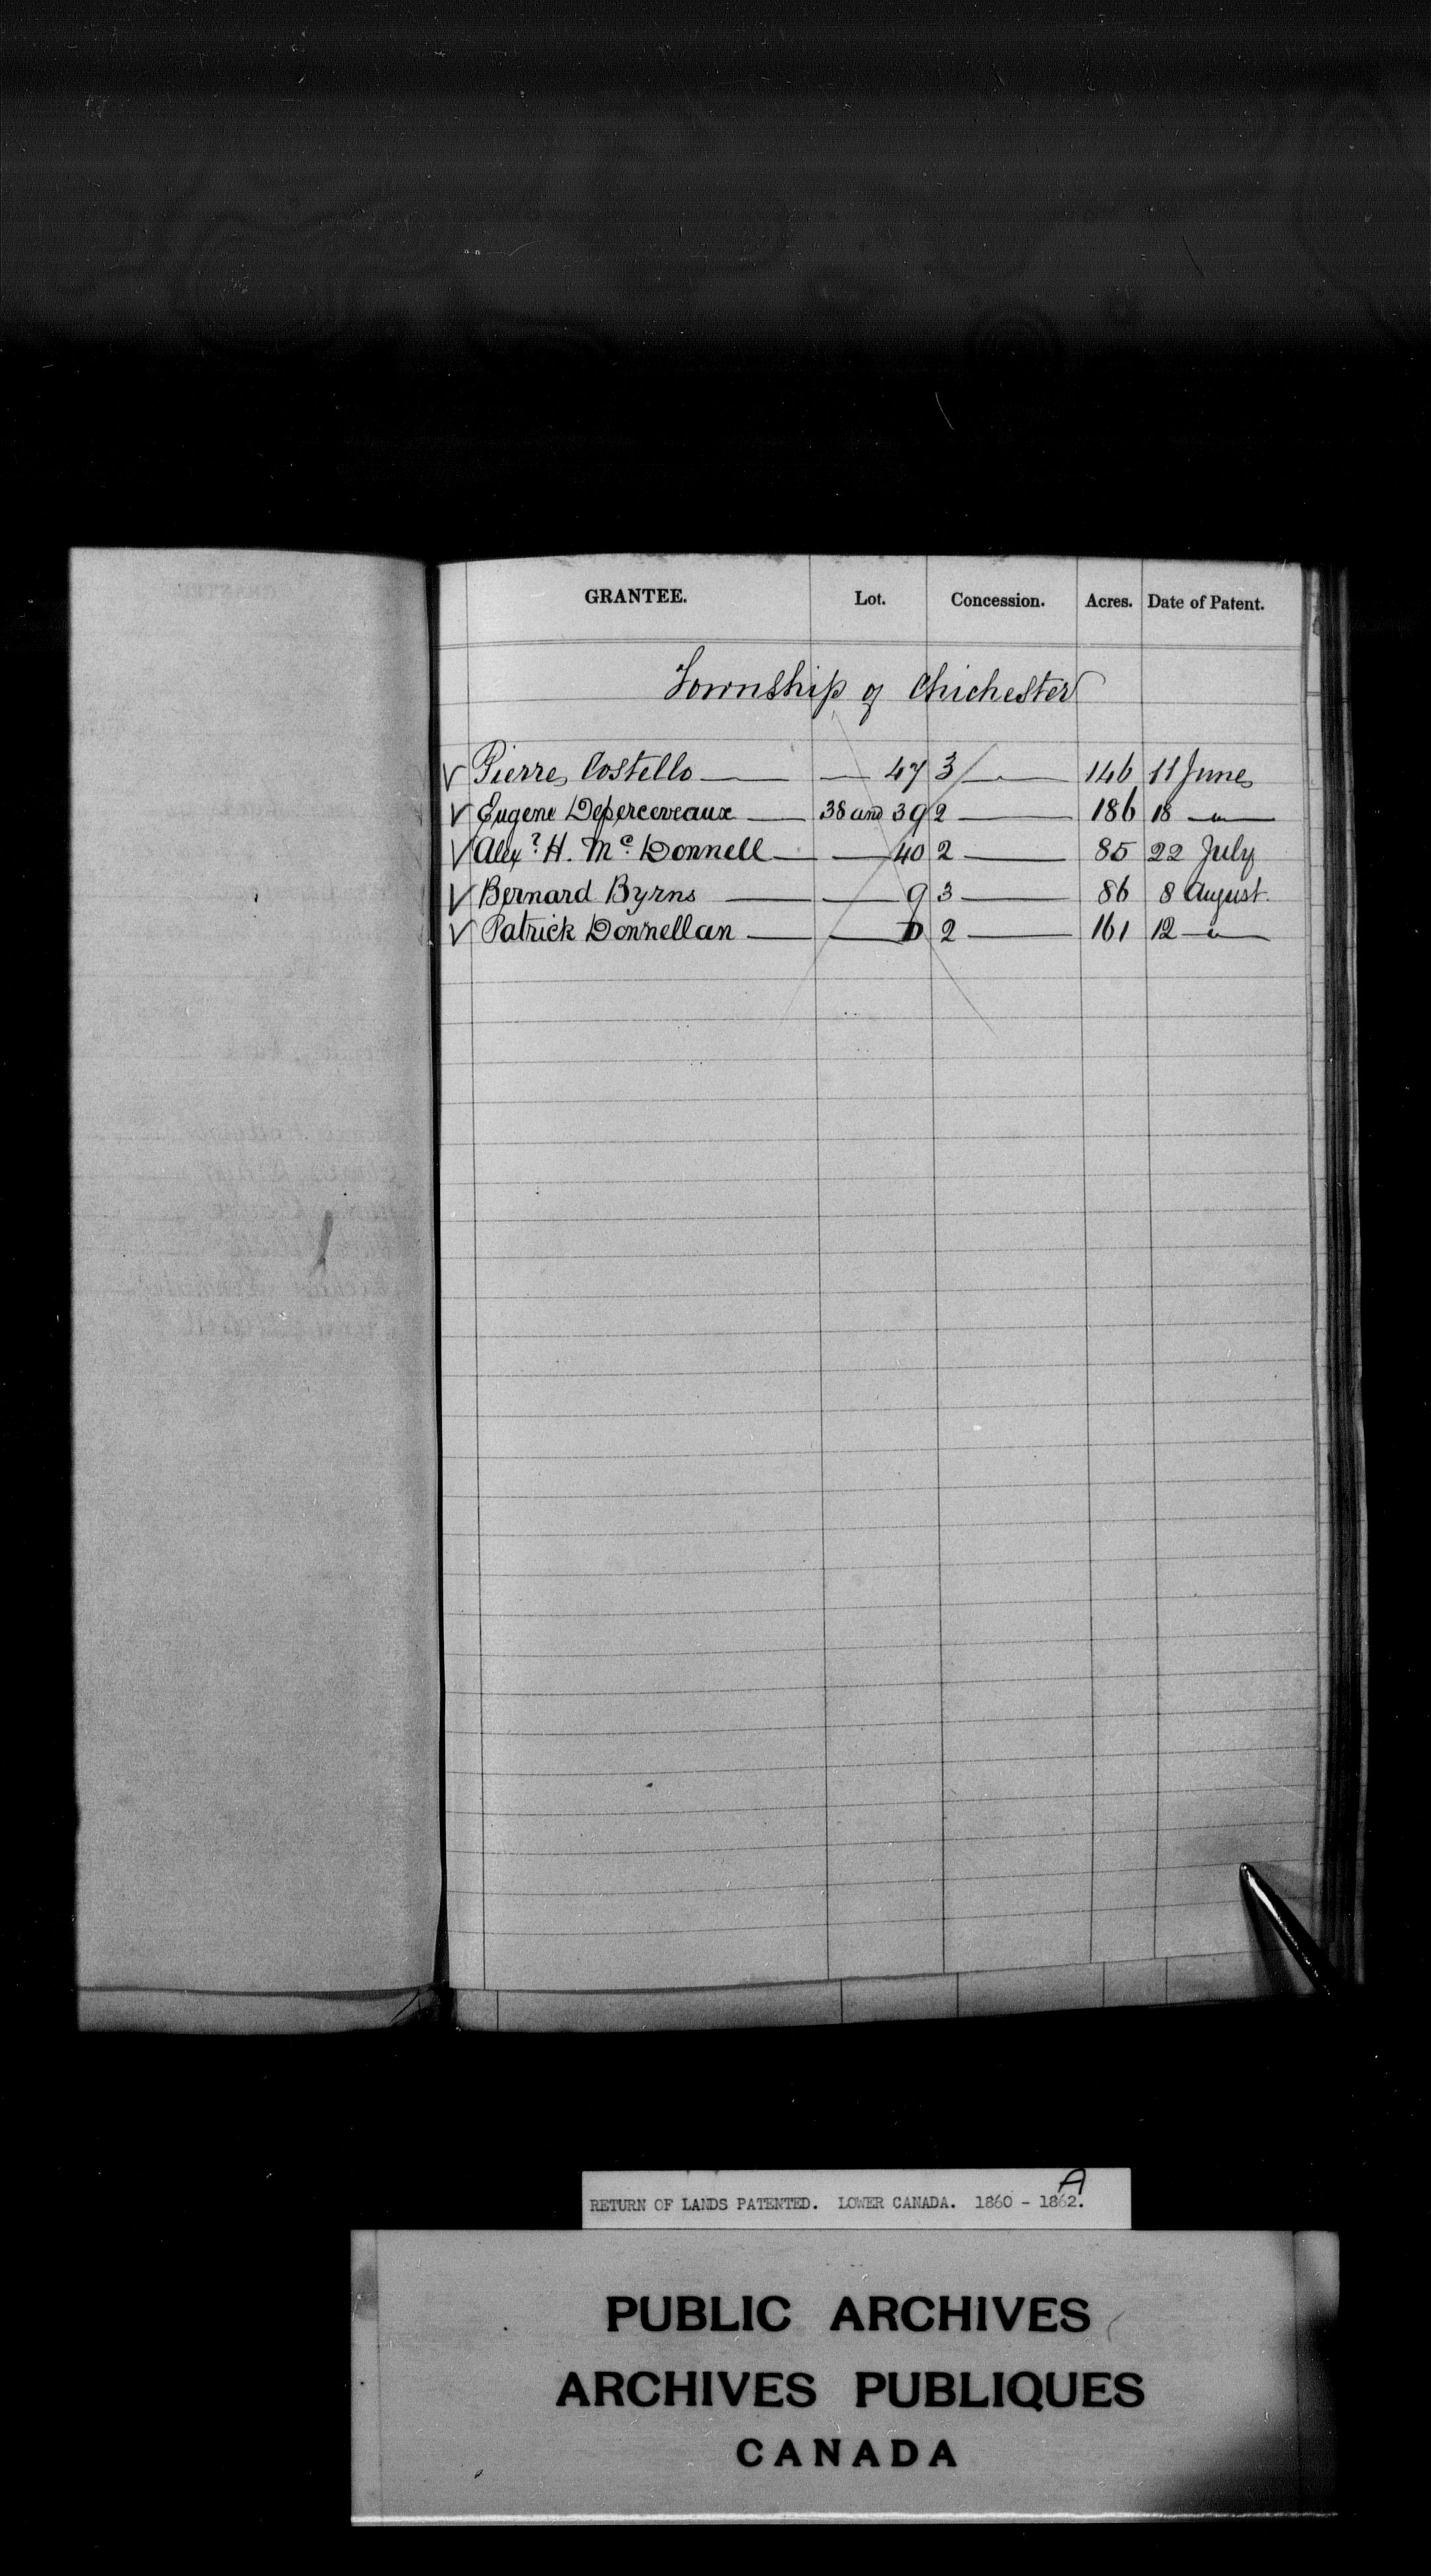 GRANTEE. Lot. Concession. Acres. Date of Patent.
Township of Chichester
√ Pierre Costello — — 47 3 — 146 11 June
√ Eugene Deperceveaux — 38 and 39 2 — 186 18 — " —
√ Alexr H. Mc Donnell — — 40 2 — 85 22 July
√ Bernard Byrns — — 9 3 — 86 8 August.
√ Patrick Donnellan — — D 2 — 161 12 — " —
A
RETURN OF LANDS PATENTED. LOWER CANADA. 1860 - 1862.
PUBLIC ARCHIVES
ARCHIVES PUBLIQUES
CANADA